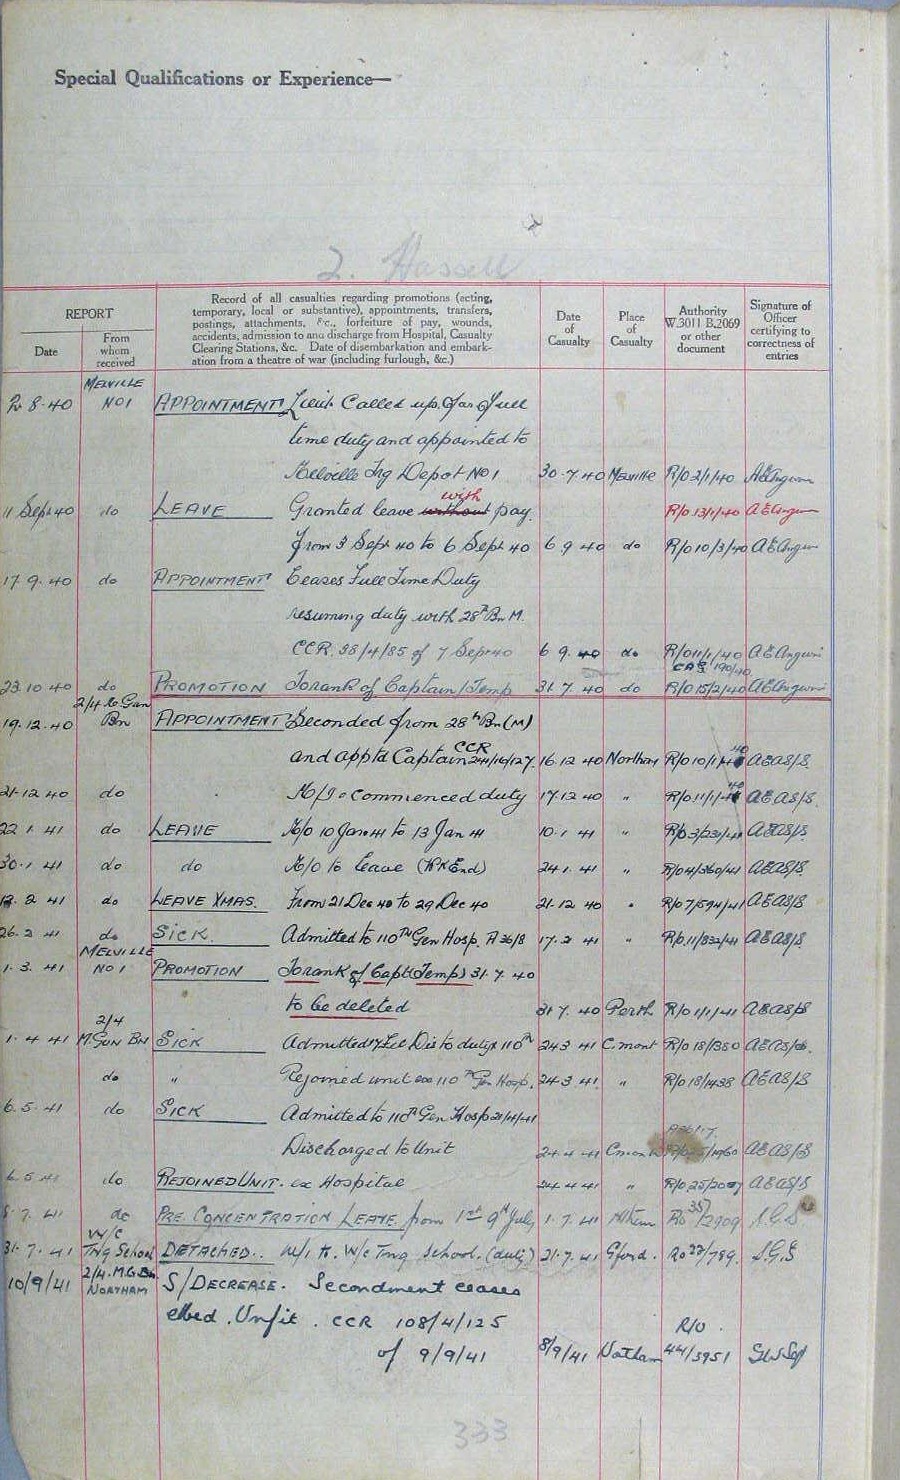 Special Qualifications or Experience—
2. Hassell
REPORT
Date
From whom received
Record of all casualties regarding promotions (acting,
temporary, local or substantive), appointments, transfers,
postings, attachments, &c., forfeiture of pay, wounds,
accidents, admission to and discharge from Hospital, Casualty
Clearing Stations, &c. Date of disembarkation and embark-
ation from a theatre of war (including furlough, &c.)
Date of Casualty
Place of Casualty
Authority W.3011 B.2069 or other document
Signature of Officer certifying to correctness of entries
MELVILLE
8.40 NO1 APPOINTMENT Lieut Called up for full
time duty and appointed to
Melville Trg Depot No 1 30.7.40 Melville R/O 2/1/40
with
11 Sept 40 do LEAVE Granted leave without pay. R/O 13/1/40
from 3 Sept 40 to 6 Sept 40 6 9 40 do R/O 10/3/40
17.9.40 do APPOINTMENT Ceases Full Time Duty
resuming duty with 28th Bn M.
CCR. 38/4/85 of 7 Sept 40 6 9 40 do R/O 11/1/40
CAS 190/40
23 10 40 do PROMOTION To rank of Captain/Temp 31.7.40 do R/O 15/2/40
2/4 Gun
19.12.40 Bn APPOINTMENT Seconded from 28th Bn (M)
CCR
and apptd Captain 16 12 40 Northam R/O 10/1/40
21.12 40 do M/I & commenced duty 17.12 40 " R/O 11/1/40
22 1 41 do LEAVE M/O 10 Jan 41 to 13 Jan 41 10.1 41 "
30.1 41 do do M/O to leave (Wk End) 24 1 41 "
12.2 41 do LEAVE XMAS. From 21 Dec 40 to 29 Dec 40 21.12 40 " R/O 7/594/41
26.2 41 do SICK. Admitted to 110th Gen Hosp. A 36/8 17.2 41 " R/O 11/832/41
MELVILLE
1.3.41 NO 1 PROMOTION To rank of Capt (Temp) 31.7.40
to be deleted 31.7.40 Perth R/O 1/1/41
2/4
1.4 41 M Gun Bn SICK Admitted Dis to duty 110th 24 3 41 C.mont R/O 18/1380
do " Rejoined unit exx 110th Gen Hosp. 24 3 41 " R/O 18/1438
6.5.41 do SICK Admitted to 110th Gen Hosp 21/4/41
Discharged to Unit 24 4 41
6 5 41 do REJOINED UNIT. ex Hospital 24 4 41 "
7.41 do PRE. CONCENTRATION LEAVE from 1st 9th July 1.7.41 Nthem Ro 35/2909 S.G.S
W/C
31.7.41 Tng School DETACHED. M/I to W/C Tmg School. (duty) 21.7.41 Gford. Ro 22/789. S.G.S
10/9/41 2/4.M.G.Bn. NORTHAM S/DECREASE. Secondment ceases
Med. Unfit. CCR 108/4/125
of 9/9/41 8/9/41 Northam R/O 44/3951
333